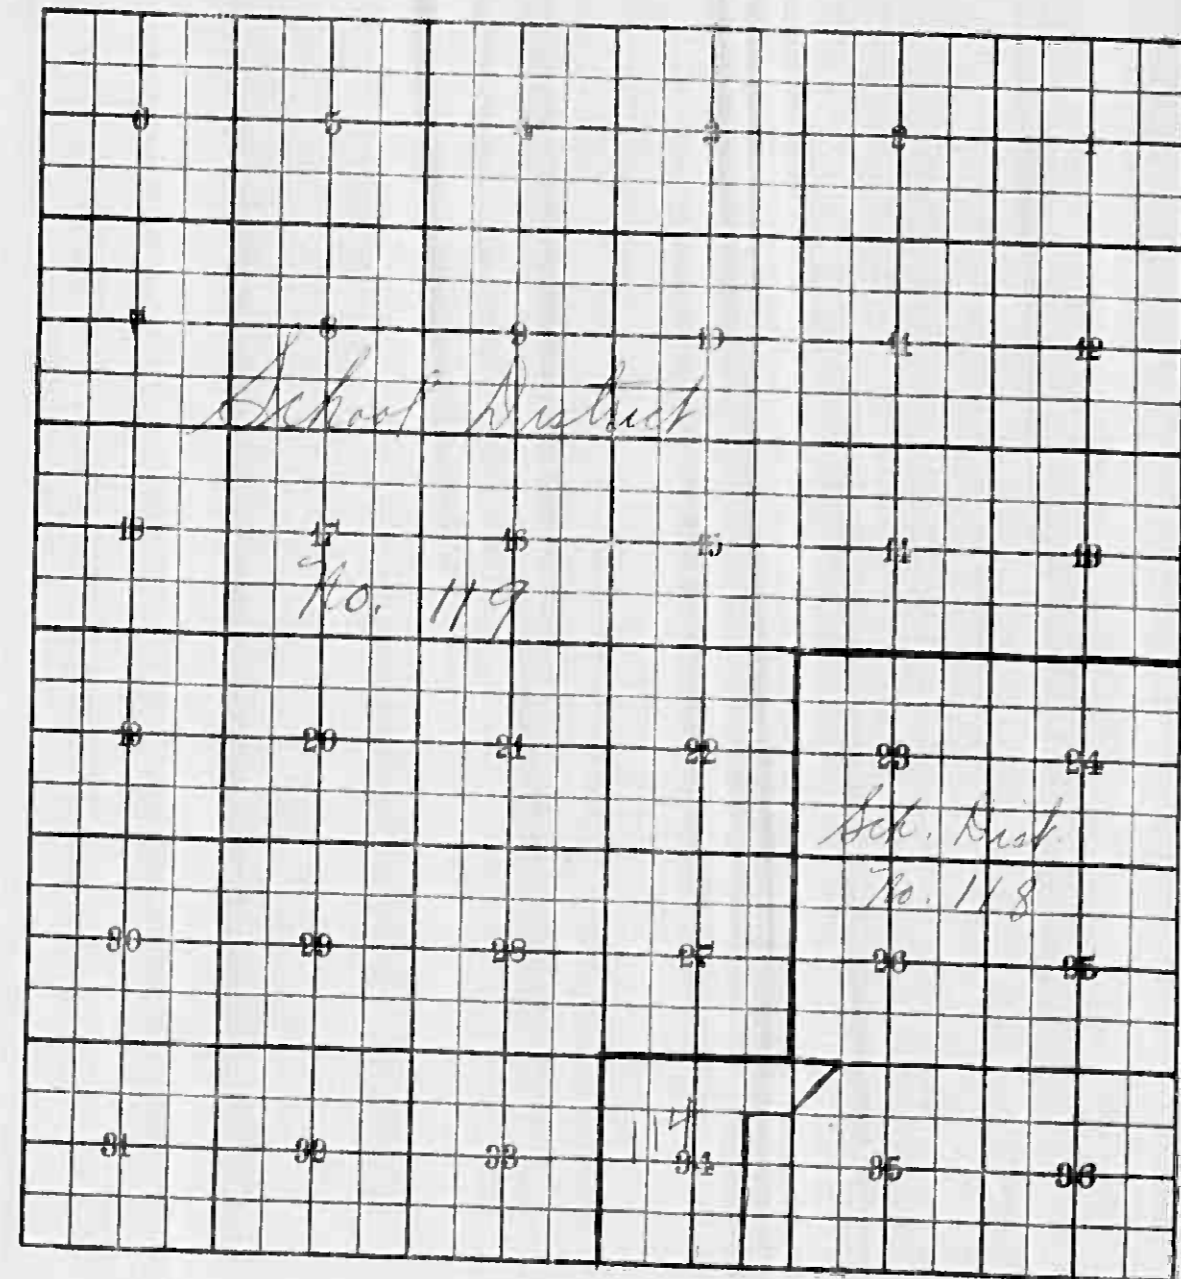 6 5 4 3 2 1
7 8 9 10 11 12
School District
18 17 16 15 14 13
No. 119
19 20 21 22 23 24
Sch. Dist.
No. 118
30 29 28 27 26 25
114
31 32 33 34 35 36